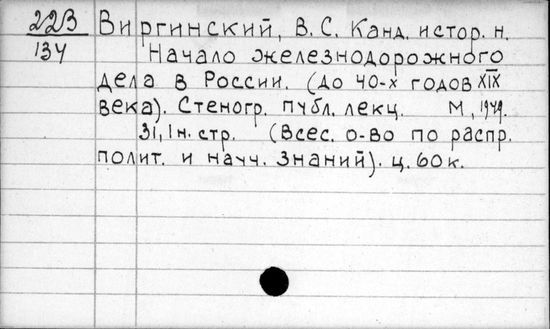 223 Виргинский, В. С. Канд. истор. н.
134 Начало железнодорожного
дела в России. (до 40-х годов XIX
века). Стеногр. публ. лекц. М, 1949.
31, 1н. стр. (Всес. о-во по распр.
полит. и науч. знаний). ц. 60 к.